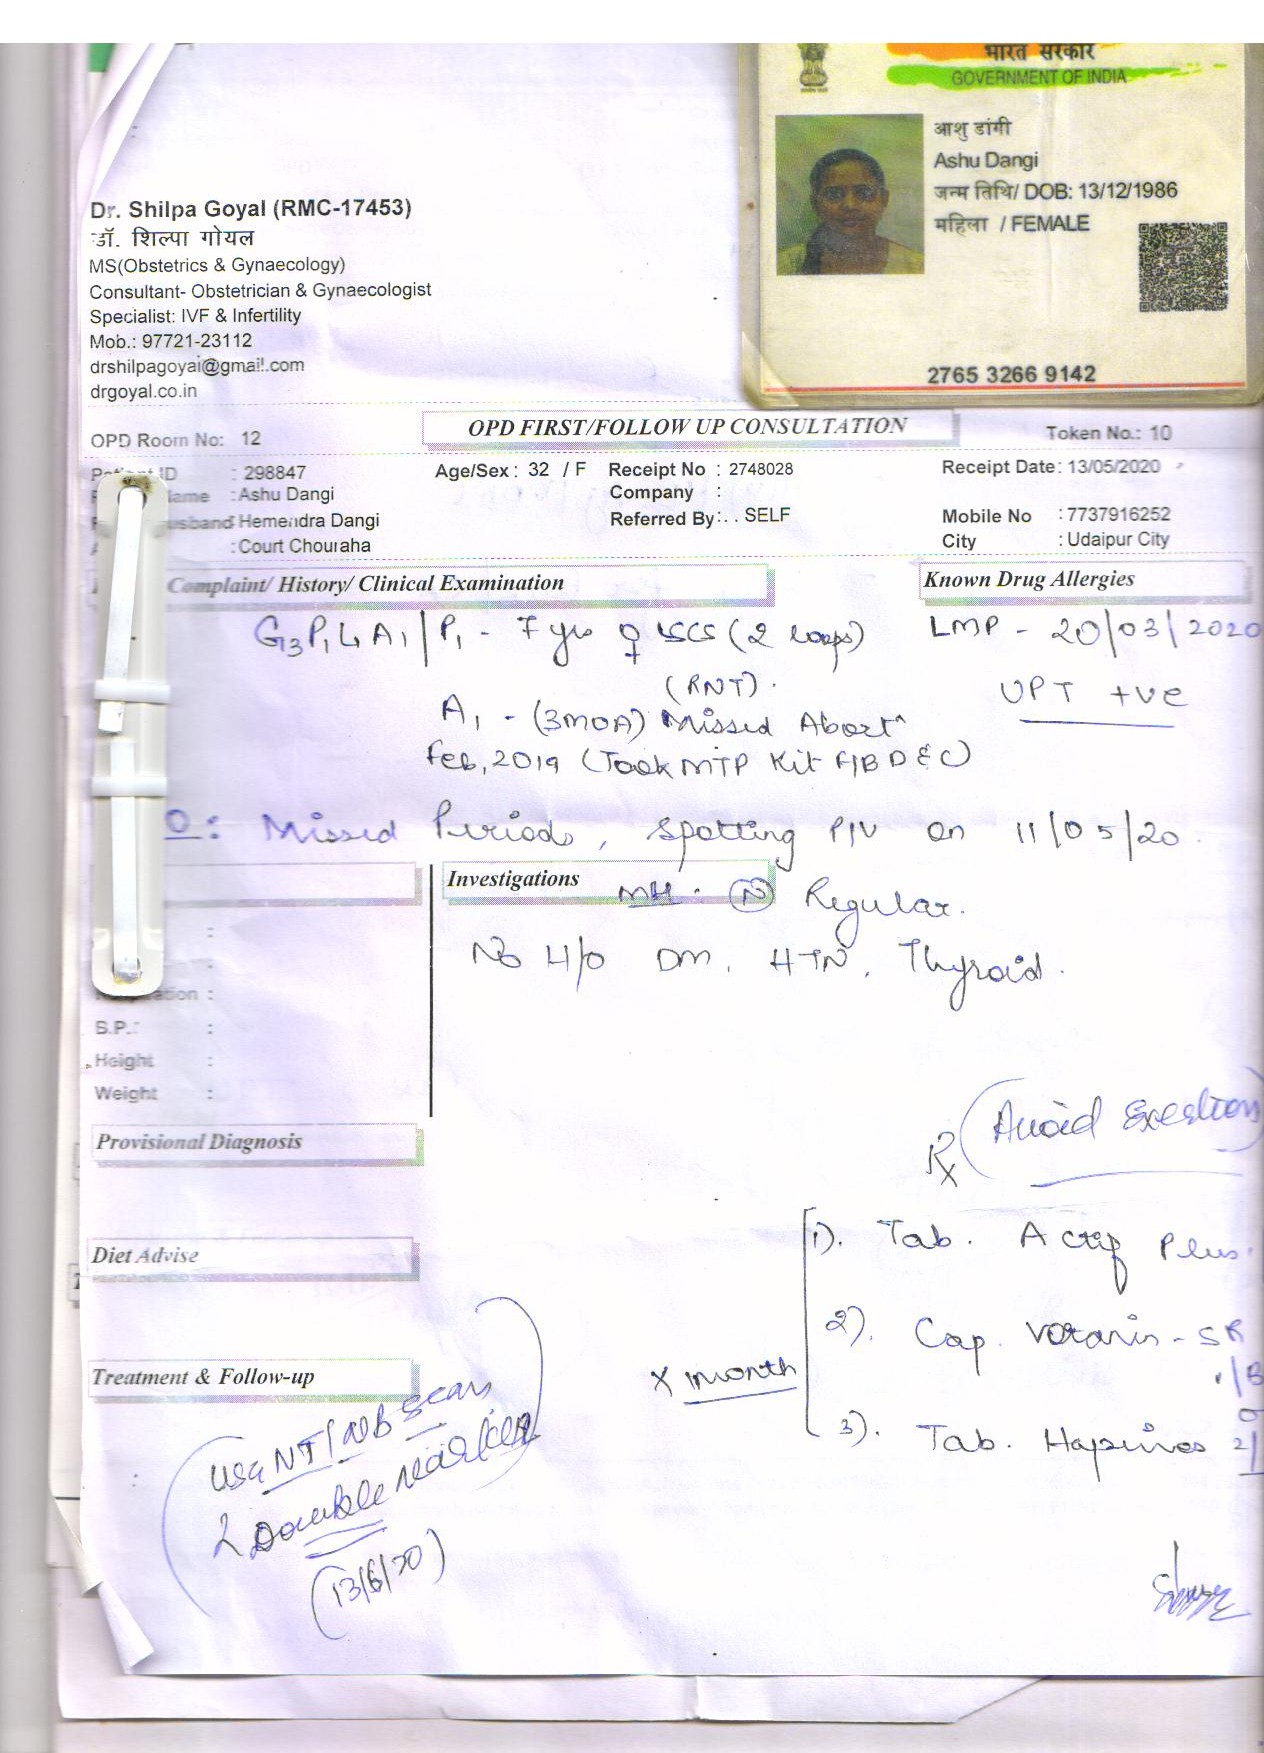 भारत सरकार
GOVERNMENT OF INDIA
आशु डांगी
Ashu Dangi
जन्म तिथि/ DOB: 13/12/1986
महिला / FEMALE
2765 3266 9142
Dr. Shilpa Goyal (RMC-17453)
डॉ. शिल्पा गोयल
MS(Obstetrics & Gynaecology)
Consultant- Obstetrician & Gynaecologist
Specialist: IVF & Infertility
Mob.: 97721-23112
drshilpagoyal@gmail.com
drgoyal.co.in
OPD Room No: 12
OPD FIRST/FOLLOW UP CONSULTATION
Token No.: 10
ID : 298847 Age/Sex : 32 / F Receipt No : 2748028 Receipt Date: 13/05/2020
ame : Ashu Dangi Company :
usband: Hemendra Dangi Referred By: . . SELF Mobile No : 7737916252
: Court Chouraha City : Udaipur City
Complaint/ History/ Clinical Examination Known Drug Allergies
G3P1L1A1 | P1 - 7 yrs ♀ LSCS (2 loops) LMP - 20/03/2020
(RNT). UPT +ve
A1 - (3MOA) Missed Abort^n
Feb, 2019 (Took MTP Kit F/B D&C)
O: Missed Periods, spotting P/V on 11/05/20.
Investigations MH: (N) Regular.
No H/o DM, HTN, Thyroid.
ation :
B.P.: :
Height :
Weight :
Provisional Diagnosis
Rx (Avoid Exertion)
Diet Advise
1). Tab. Actif Plus
2). Cap. - SR
x 1 month
3). Tab.
Treatment & Follow-up
USG NT/NB scan
Double Marker
(13/6/20)